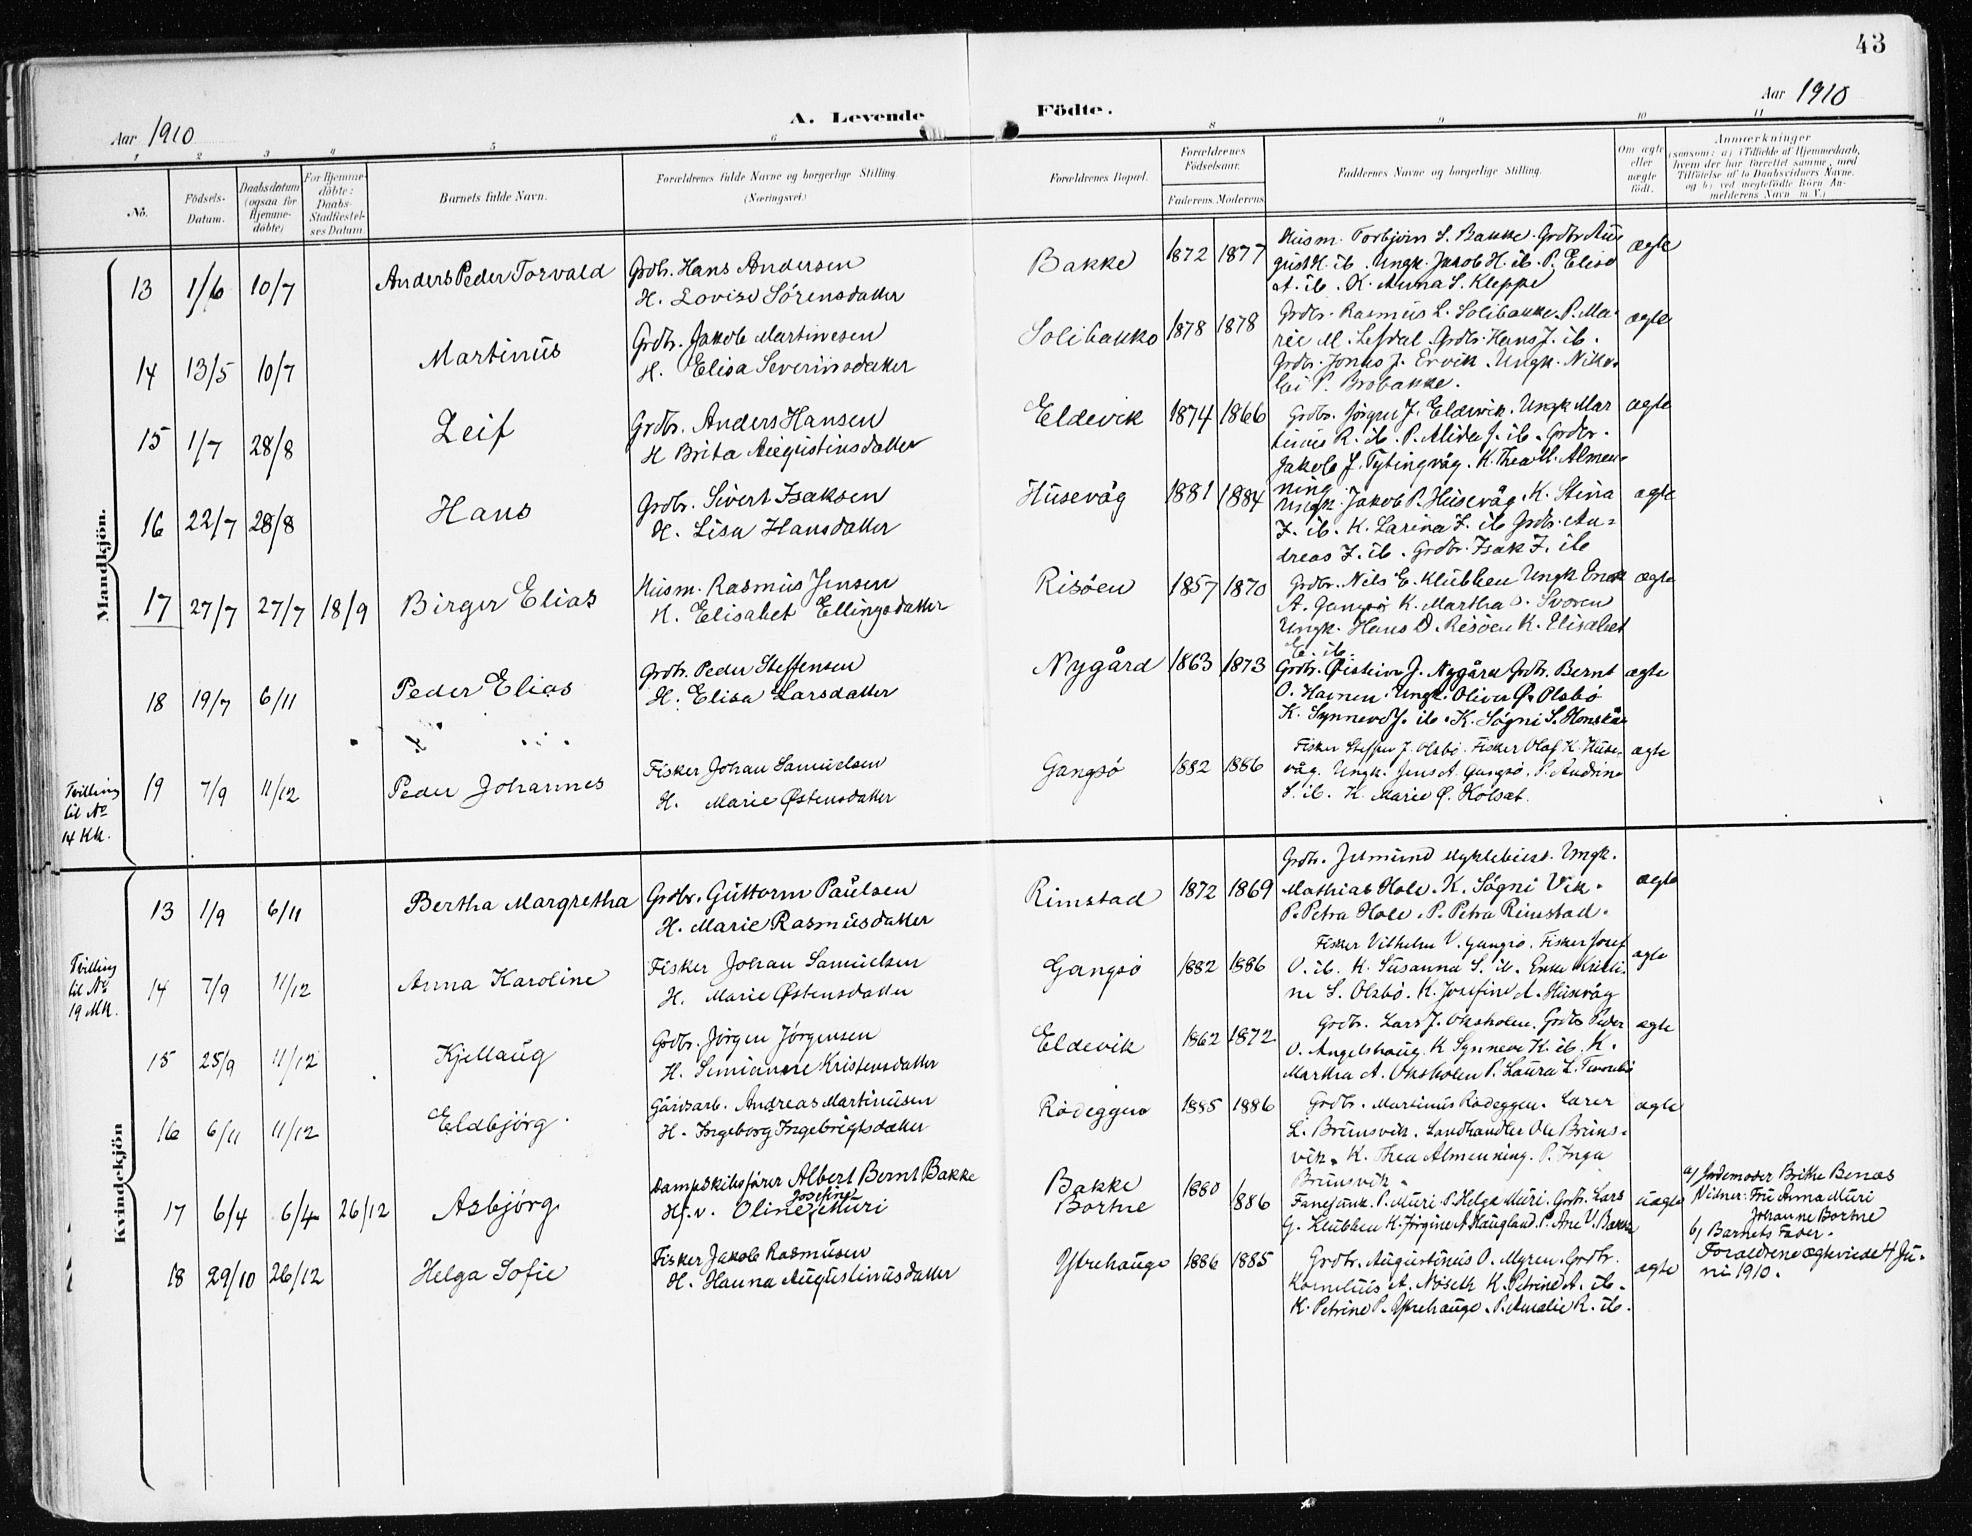 43
Aar 1910
A. Levende Födte.
Aar 1910
1 2 3 4 5 6 8 9 10 11
No.
Födsels-Datum.
Daabsdatum (ogsaa for Hjemme-döbte)
For Hjemme-döbte: Daabs-Stadfestel-ses Datum.
Barnets fulde Navn.
Forældrenes fulde Navne og borgerlige Stilling. (Næringsvei)
Forældrenes Bopæl.
Forældrenes Födselsaar.
Faderens. Moderens.
Faddernes Navne og borgerlige Stilling.
Om ægte eller uægte födt.
Anmærkninger
(saasom: a) i Tilfælde af Hjemmedaab,
hvem der har forrettet samme, med
Tilföielse af to Daabsvidners Navne.
og b) ved uægtefödte Börn An-
melderens Navn m. V.)
Mandkjön.
13 1/6 10/7 Anders Peder Torvald Grdbr. Hans Andersen
H. Lovise Sörensdatter
Bakke 1872 1877
Husm. Torbjörn S. Bakke. Grdbr Au-
gust H. ib. Ungk. Jakob H. ib. P. Elise
A. ib. K. Anna S. Kleppe
ægte
14 13/5 10/7 Martinus Grdbr. Jakob Martinesen
H. Elisa Severinsdatter
Solibakke 1878 1878
Grdbr. Rasmus L. Solibakke. P. Ma-
rie M. Lefdal. Grdbr. Hans J. ib.
Grdbr. Jonas J. Ervik. Ungk. Niko-
lai P. Brobakke.
ægte
15 1/7 28/8 Leif Grdbr. Anders Hansen
H Brita Augustinusdatter
Eldevik 1874 1866
Grdbr. Jörgen J. Eldevik. Ungk Mar
tinus R. ib. P. Alida J. ib. Grdbr.
Jakob J. Tytingvåg. K. Thea M. Almen-
ning
ægte
16 22/7 28/8 Hans Grdbr. Sivert Isaksen
H. Lisa Hansdatter
Husevåg 1881 1884
Ungk. Jakob P. Husevåg. K. Stina
I. ib. K. Larina I. ib Grdbr. An-
dreas I. ib. Grdbr. Isak I. ib
ægte
17 27/7 27/7 18/9 Birger Elias Husm. Rasmus Jensen
H. Elisabet Ellingsdatter
Risöen 1857 1870
Grdbr. Nils E. Klubben Ungk Enok
A. Gangsö K. Martha O. Svoren
Ungk. Hans D. Risöen K. Elisabet
E. ib.
ægte
18 19/7 6/11 Peder Elias Grdbr. Peder Steffensen
H. Elisa Larsdatter
Nygård 1863 1873
Grdbr. Øistein J. Nygård Grdbr. Bernt
O. Hamen. Ungk. Oliver Ø. Olsbö
K. Synneve J. ib. K. Sögni S.
ægte
Tvilling
til No
14 Kk.
19 7/9 11/12 Peder Johannes Fisker Johan Samuelsen
H. Marie Østensdatter
Gangsö 1882 1886
Fisker Steffen J. Olsbö. Fisker Olaf K. Huse-
våg. Ungk. Jens A. Gangsö. P. Andrine
S. ib. K. Marie Ø. Kolset.
ægte
Kvindekjön
13 1/9 6/11 Bertha Margretha Grdbr. Guttorm Paulsen
H. Marie Rasmusdatter
Rimstad 1872 1869
Grdbr. Jetmund Myklebust. Ungk.
Mathias Hole. K. Sögni Vik.
P. Petra Hole. P. Petra Rimstad.
ægte
Tvilling
til No
19 Mk.
14 7/9 11/12 Anna Karoline Fisker Johan Samuelsen
H. Marie Østensdatter
Gangsö 1882 1886
Fisker Vilhelm V. Gangsö. Fisker Josef
O. ib. K. Susanna S. ib. Enke Kristi-
ne S. Olsbö. K. Josefine A. Husevåg
ægte
15 25/9 11/12 Kjellaug Grdbr. Jörgen Jörgensen
H. Simianne Kristensdatter
Eldevik 1862 1872
Grdbr. Lars J. Oksholen. Grdbr Peder
O. Angelshaug. K Synneve K. ib. K.
Martha A. Oksholen P. Laura L.
ægte
16 6/11 11/12 Eldbjörg Gårdsarb. Andreas Martinusen
H. Ingeborg Ingebrigtsdatter
Rödeggen 1885 1886
Grdbr. Martinus Rödeggen. Lærer
L. Brunsvik. Landhandler Ole Bruns-
vik. K. Thea Almenning. P. Inga
Brunsvik.
ægte
17 6/4 6/4 26/12 Asbjörg Dampskibsförer Albert Bernt Bakke
H. v. Oline Josefine Muri
Bakke
Bortne
1880 1886
P. Muri. P. Helga Muri. Grdbr. Lars
G. Klubben K. Jörgine A Haugland. P. Ane V. Bakke
uægte
a) Jordemoder Brikke Benas
Vidner: Fru Anna Muri
Johanne Bortne
b) Barnets Fader.
Forældrene ægteviede 4 Ju-
ni 1910.
18 29/10 26/12 Helga Sofie Fisker Jakob Rasmusen
H. Hanna Augustinusdatter
Ytrehauge 1886 1885
Grdbr. Augustinus O. Myren. Grdbr.
Kornelius A. Nöseth K. Petrine A. ib.
K. Petrine P. Ytrehauge. P. Amalie R. ib.
ægte